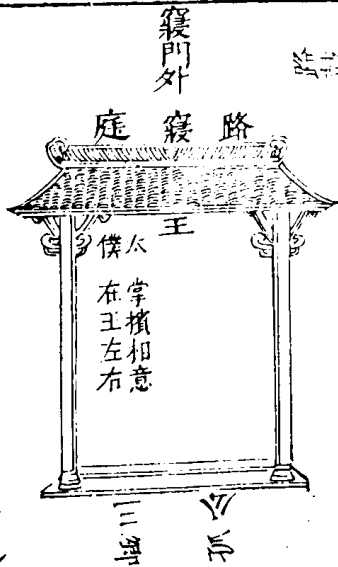 寢門外
路寢庭
王
太僕
掌擯相意
在王左右
三
公